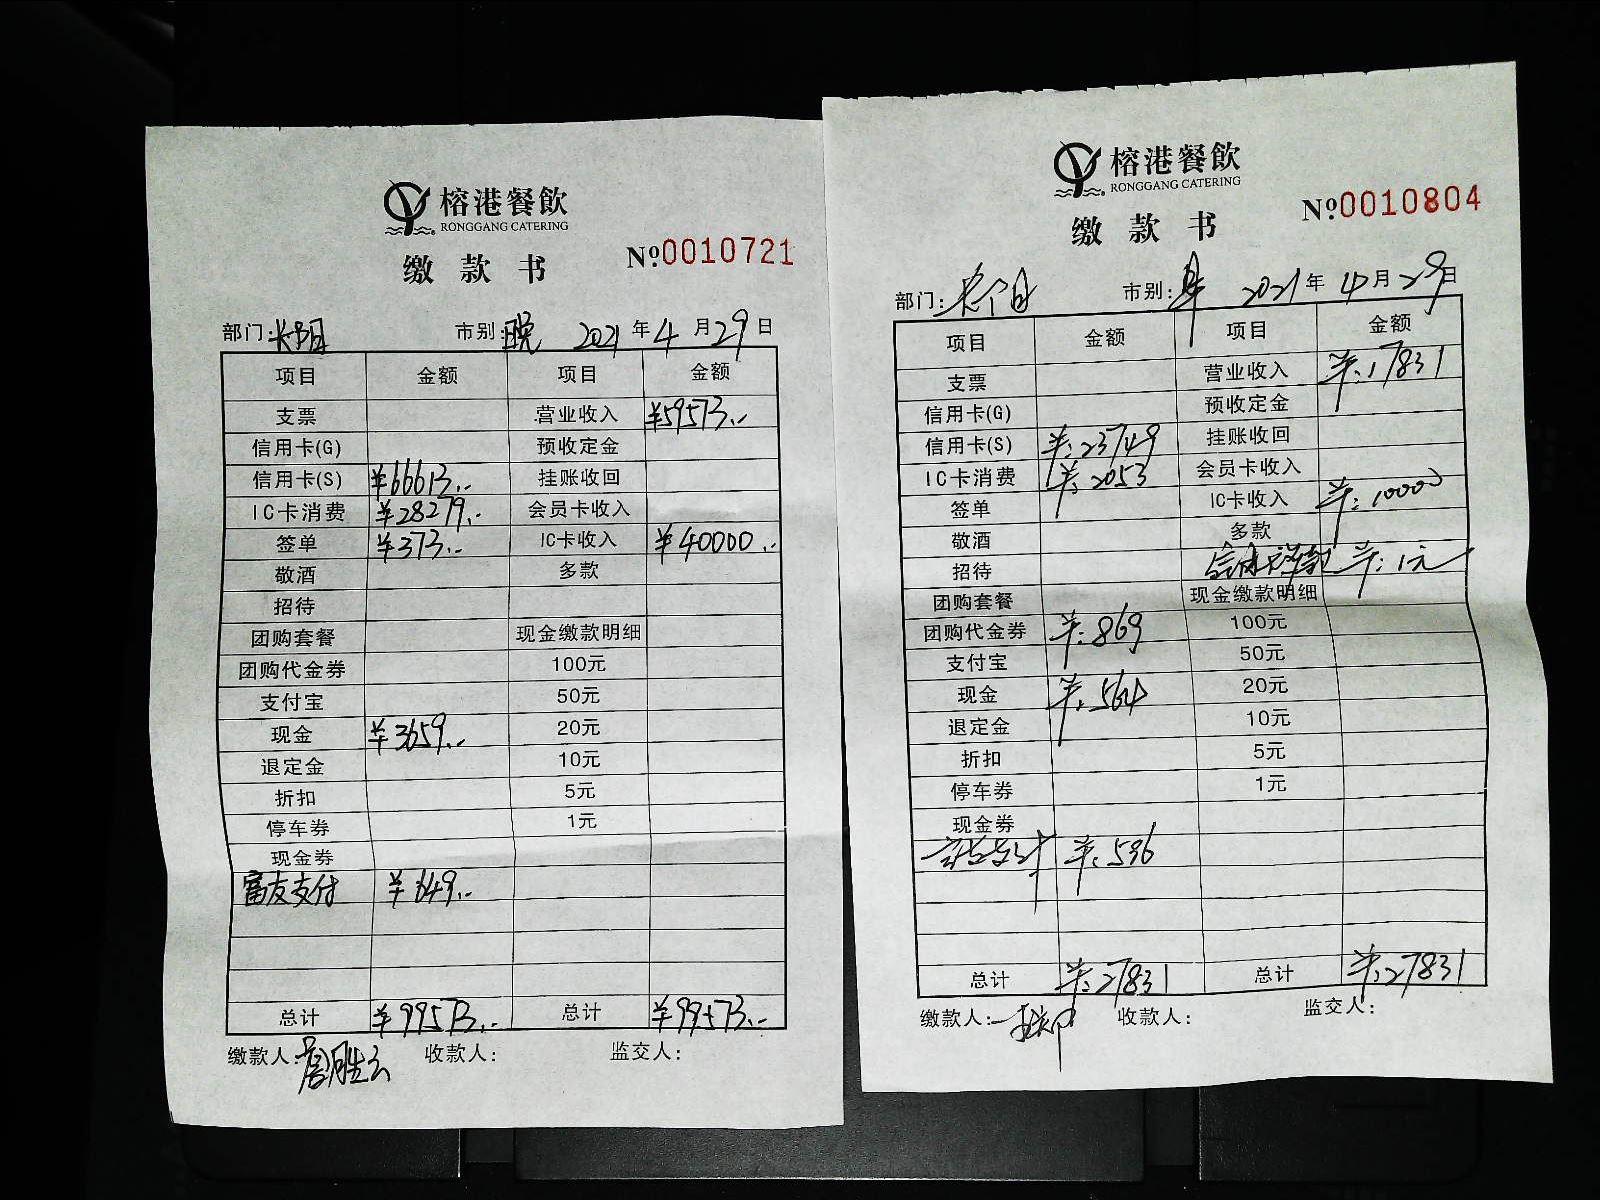 榕港餐飲
RONGGANG CATERING
缴款书
№0010721
部门: 长阳 市别: 晚 2021年4月29日
项目 金额 项目 金额
支票 营业收入 ¥59573.-
信用卡(G) 预收定金
信用卡(S) ¥66613.- 挂账收回
IC卡消费 ¥28279.- 会员卡收入
签单 ¥373.- IC卡收入 ¥40000.-
敬酒 多款
招待
团购套餐 现金缴款明细
团购代金券 100元
支付宝 50元
现金 ¥3659.- 20元
退定金 10元
折扣 5元
停车券 1元
现金券
富友支付 ¥649.-
总计 ¥99573.- 总计 ¥99573.-
缴款人: 收款人: 监交人:
榕港餐飲
RONGGANG CATERING
缴款书
№0010804
部门: 长阳 市别: 2021年4月29日
项目 金额 项目 金额
支票 营业收入 ¥:17831
信用卡(G) 预收定金
信用卡(S) ¥:23749 挂账收回
IC卡消费 ¥:2053 会员卡收入
签单 IC卡收入 ¥:10000
敬酒 多款
招待 ¥:1元
团购套餐 现金缴款明细
团购代金券 ¥:869 100元
支付宝 50元
现金 ¥:564 20元
退定金 10元
折扣 5元
停车券 1元
现金券
¥:596
总计 ¥:27831 总计 ¥:27831
缴款人: 收款人: 监交人: